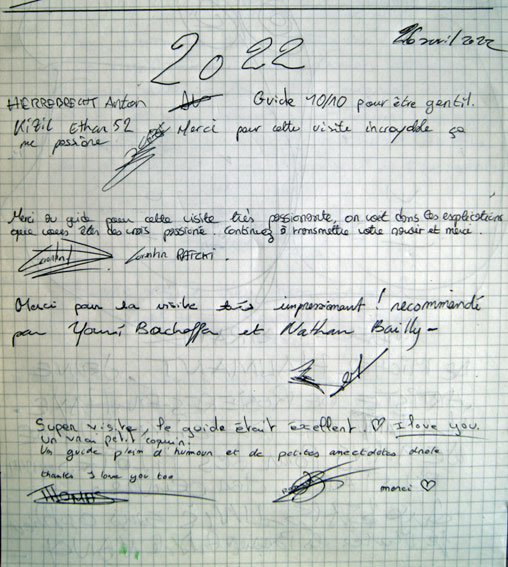 26 avril 2022
2022
HERREBRECHT Anton Guide 10/10 pour être gentil.
KIZIL Ethan 52 Merci pour cette visite incroyable ça
me passione
Merci au guide pour cette visite très passionnante, on voit dans les explications
que vous êtes des vrais passioné. continuez à transmettre votre savoir et merci.
Corentin
Merci pour la visite très impressionant ! recommendé
par Bachoffa et Nathan Bailly-
Super visite, le guide était excellent. ♡ I love you.
un vrai petit coquin!
Un guide plein d'humour et de petites anectdotes drole
thanks I love you too
THOMAS merci ♡